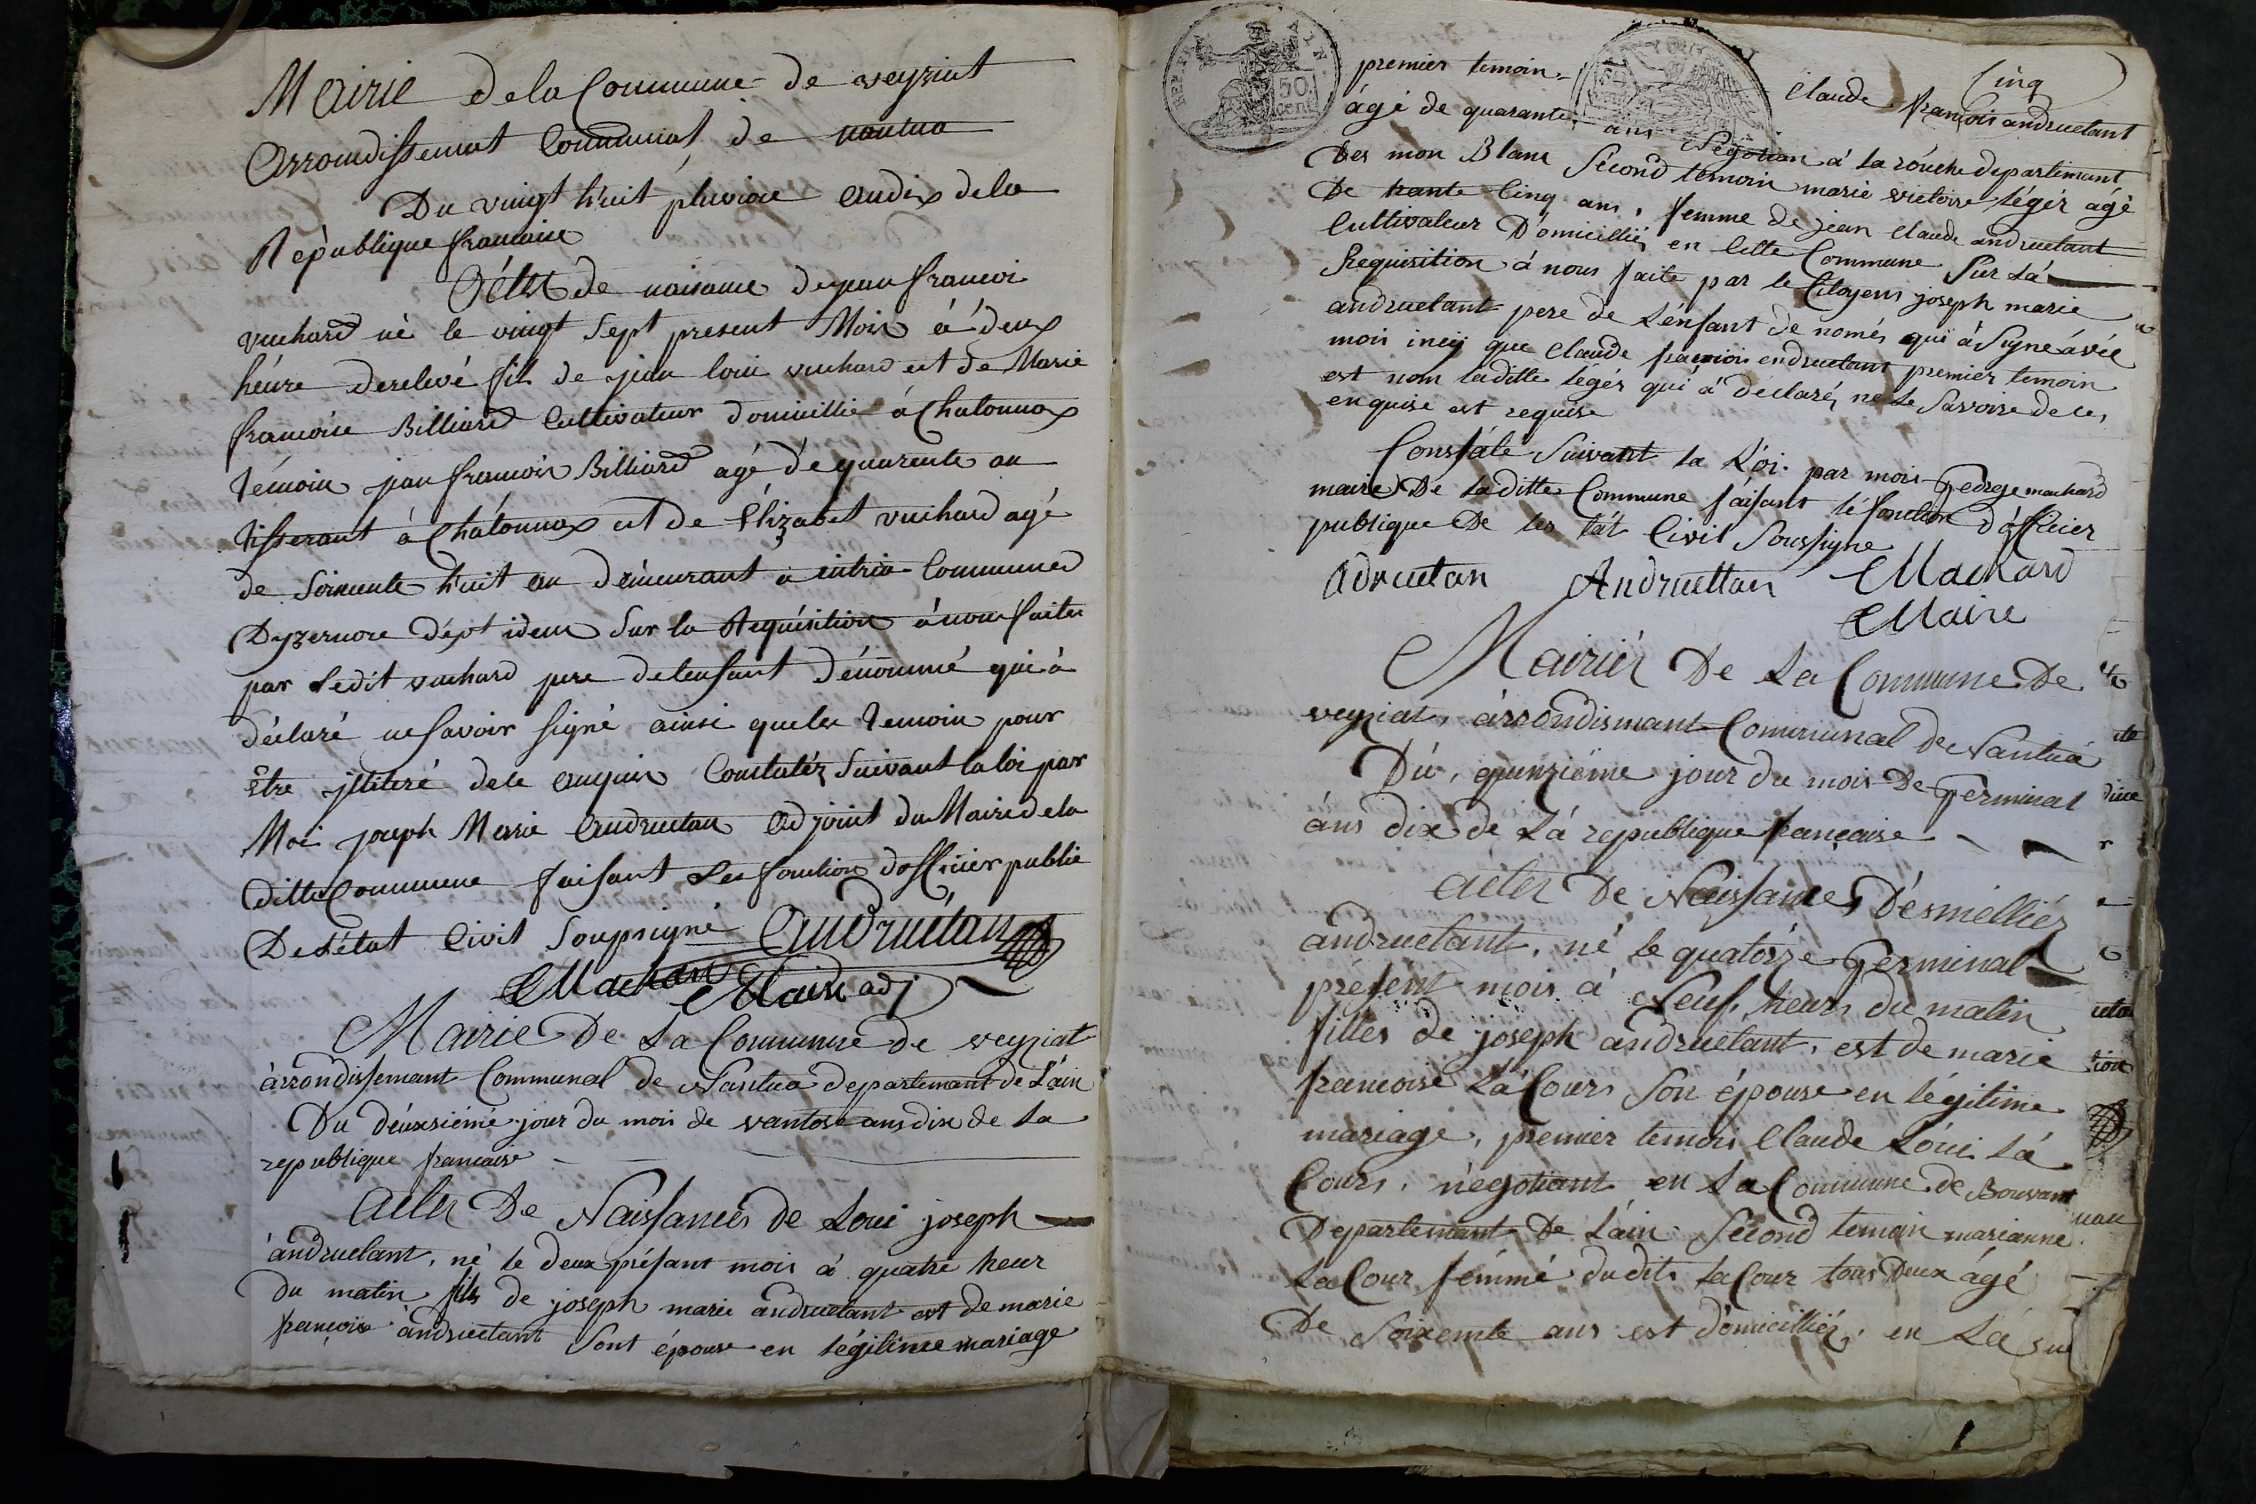 Mairie de la Commune de veyziat
arrondissement Communal de nantua
Du vingt huit pluviose an dix de la
République francaise
Acte de naisance de jean francoi
vuchard né le vingt Sept present Mois à deux
héure derelevé fils de jean loui vuchard et de Marie
francoise Billiard Cultivateur domicillié à Chatonnax
témoin jean francois Billiard agé de quarente an
tisserant à Chatonnax et de Élizabet vuchard agé
de Soixente huit an demeurant à intria Commune
Dyzernore dépt idem Sur la Requisition à nous faite
par Ledit vuchard pere de lenfant dénommé qui à
déclaré ne Savoir signé ainsi que les temoin pour
Etre illiteré de ce enquis Constatéz Suivant la loi par
Moi joseph Marie Andructan Adjoint du Maire de la
ditte Commune faisant Les fonction dofficier public
De Létat Civit Soussigné Andruétan
Machard Maire adj
Mairie De La Commune de veyziat
àrrondissemant Communal de Nantua departemant de L'ain
Du déuxsiémé jour du mois de vantose ans dix de La
republique francaise
Actes De Naissances de Loui joseph
andruetant, né le deux présant mois à quatre heur
du matin fils de joseph marie andruetant est de marie
françoise andruetant Sont épouse en légitime mariage
Cinq
premier temoin, Claude françois andruetant
âgé de quarante ans Négotian á la rouche departemant
Des mon Blanc Second temoin marie victoire légér agé
De trante Cinq ans, femme de jean Claude andruetant
Cultivateur Domicillié en Cette Commune Sur La
Requisition á nous faite par le Citoyens joseph marie
andruetant pere de L'énfant de només qui à Signé avéc
moi incy que Claude francois endruetant premier temoin
est nom laditte légér qui á declaré, ne Le Savoire de ce,
enquise est requise
Constate Suivant la Loi par mois George machard
maire De Laditte Commune faisant lé fonction d'officier
publique De les tat Civil Soussigne
Adructan Andruettan Machard
Maire
Mairiér De La Commune De
veyziat, árrondismant Communal de Nantua
Dú, quinziéme jour du mois De Germinal
áns dix de Lá republique française
Actes De Naissance, Désmelliéz
andruetant, né le quatorze Germinal
présent mois á Neuf heurs du matin
filles de joseph andruetant, est de marie
francoise Lá Cours Son épouse en légitime
mariage, premier temois Claude Loui Lá
Cours, négotiant en La Commune de Bouvant
Departemant De L'ain Sécond temoin marianne
La Cour fémmé dudit La Cour tous Deux ágé
De Soixente ans est domicilliéz en La sus